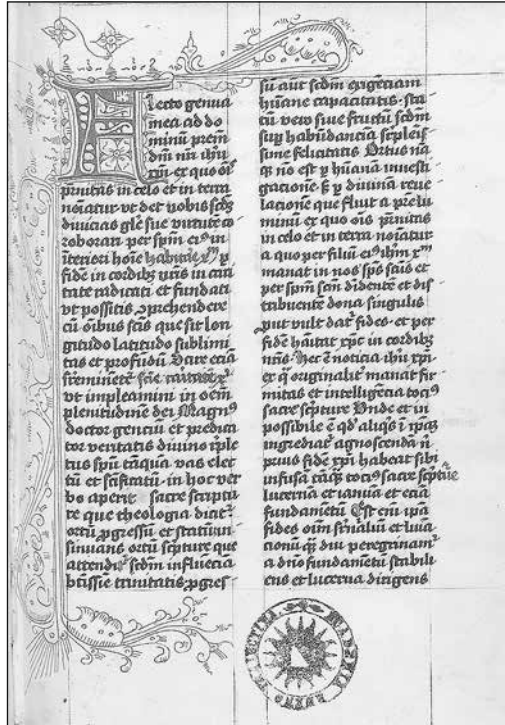 Flecto genua
mea ad do
minū prem̄
dn̄i nr̄i ihū
xp̄i ex quo oīs
pr̄nitas in celo et in terra
noīatur vt det vobis scd̄m
diuicias glē sue virtute co
roborari per spm̄ eiꝰ in
īteriori hoīe habitare xp̄m p
fidē in cordibꝫ vr̄is in cari
tate radicati et fundati
vt possitis ꝯprehendere
cū oībus scīs que sit lon
gitudo latitudo sublimi
tas et profūdū Scire eciā
sūeminētē scīe caritatē xp̄i
vt impleamini in oēm
plenitudinē dei Magnꝰ
doctor genciū et predica
tor veritatis diuino īple
tus spū tāquā vas elec
tū et scīficatū in hoc ver
bo aperit sacre scriptu
re que theologia dicitˀ
ortū ꝓgressū et statū in
sinuans ortū scpture que
attendiˀ scd̄m influēciā
btīssie trinitatis ꝓgres
sū aut̄ scd̄m exigēciam
hūane capacitatis sta
tū vero siue fructū scd̄m
sup habūdanciā
sime felicitatis Ortus nāꝗ
nō est p hūanā inuesti
gacionē sꝫ p diuinā reue
lacionē que fluit a pr̄e lu
minū ex quo oīs pr̄nitas
in celo et in terra noīatur
a quo per filiū eiꝰ ihm̄ xp̄m
manat in nos sp̄s scūs et
per spm̄ scm̄ diuidentē et dis
tribuentē dona singulis
put vult datˀ fides et per
fidē hītat xp̄c in cordibꝫ
nr̄is Hec ē noticia ihū xp̄i
ex qͣ originalitˀ manat fir
mitas et intelligēcia tociꝰ
sacre scpture Vnde et in
possibile ē qd̓ aliqͥs ī ipaꝫ
ingrediatˀ agnoscendā n̄
prius fidē xp̄i habeat sibi
infusā tāꝗꝫ tociꝰ sacre scpture
lucernā et ianuā et eciā
fundamētū Est enī ipā
fides oīm
cionū qͣꝫ diu peregrinamˀ
a dn̄o fundamētū stabili
ens et lucerna dirigens